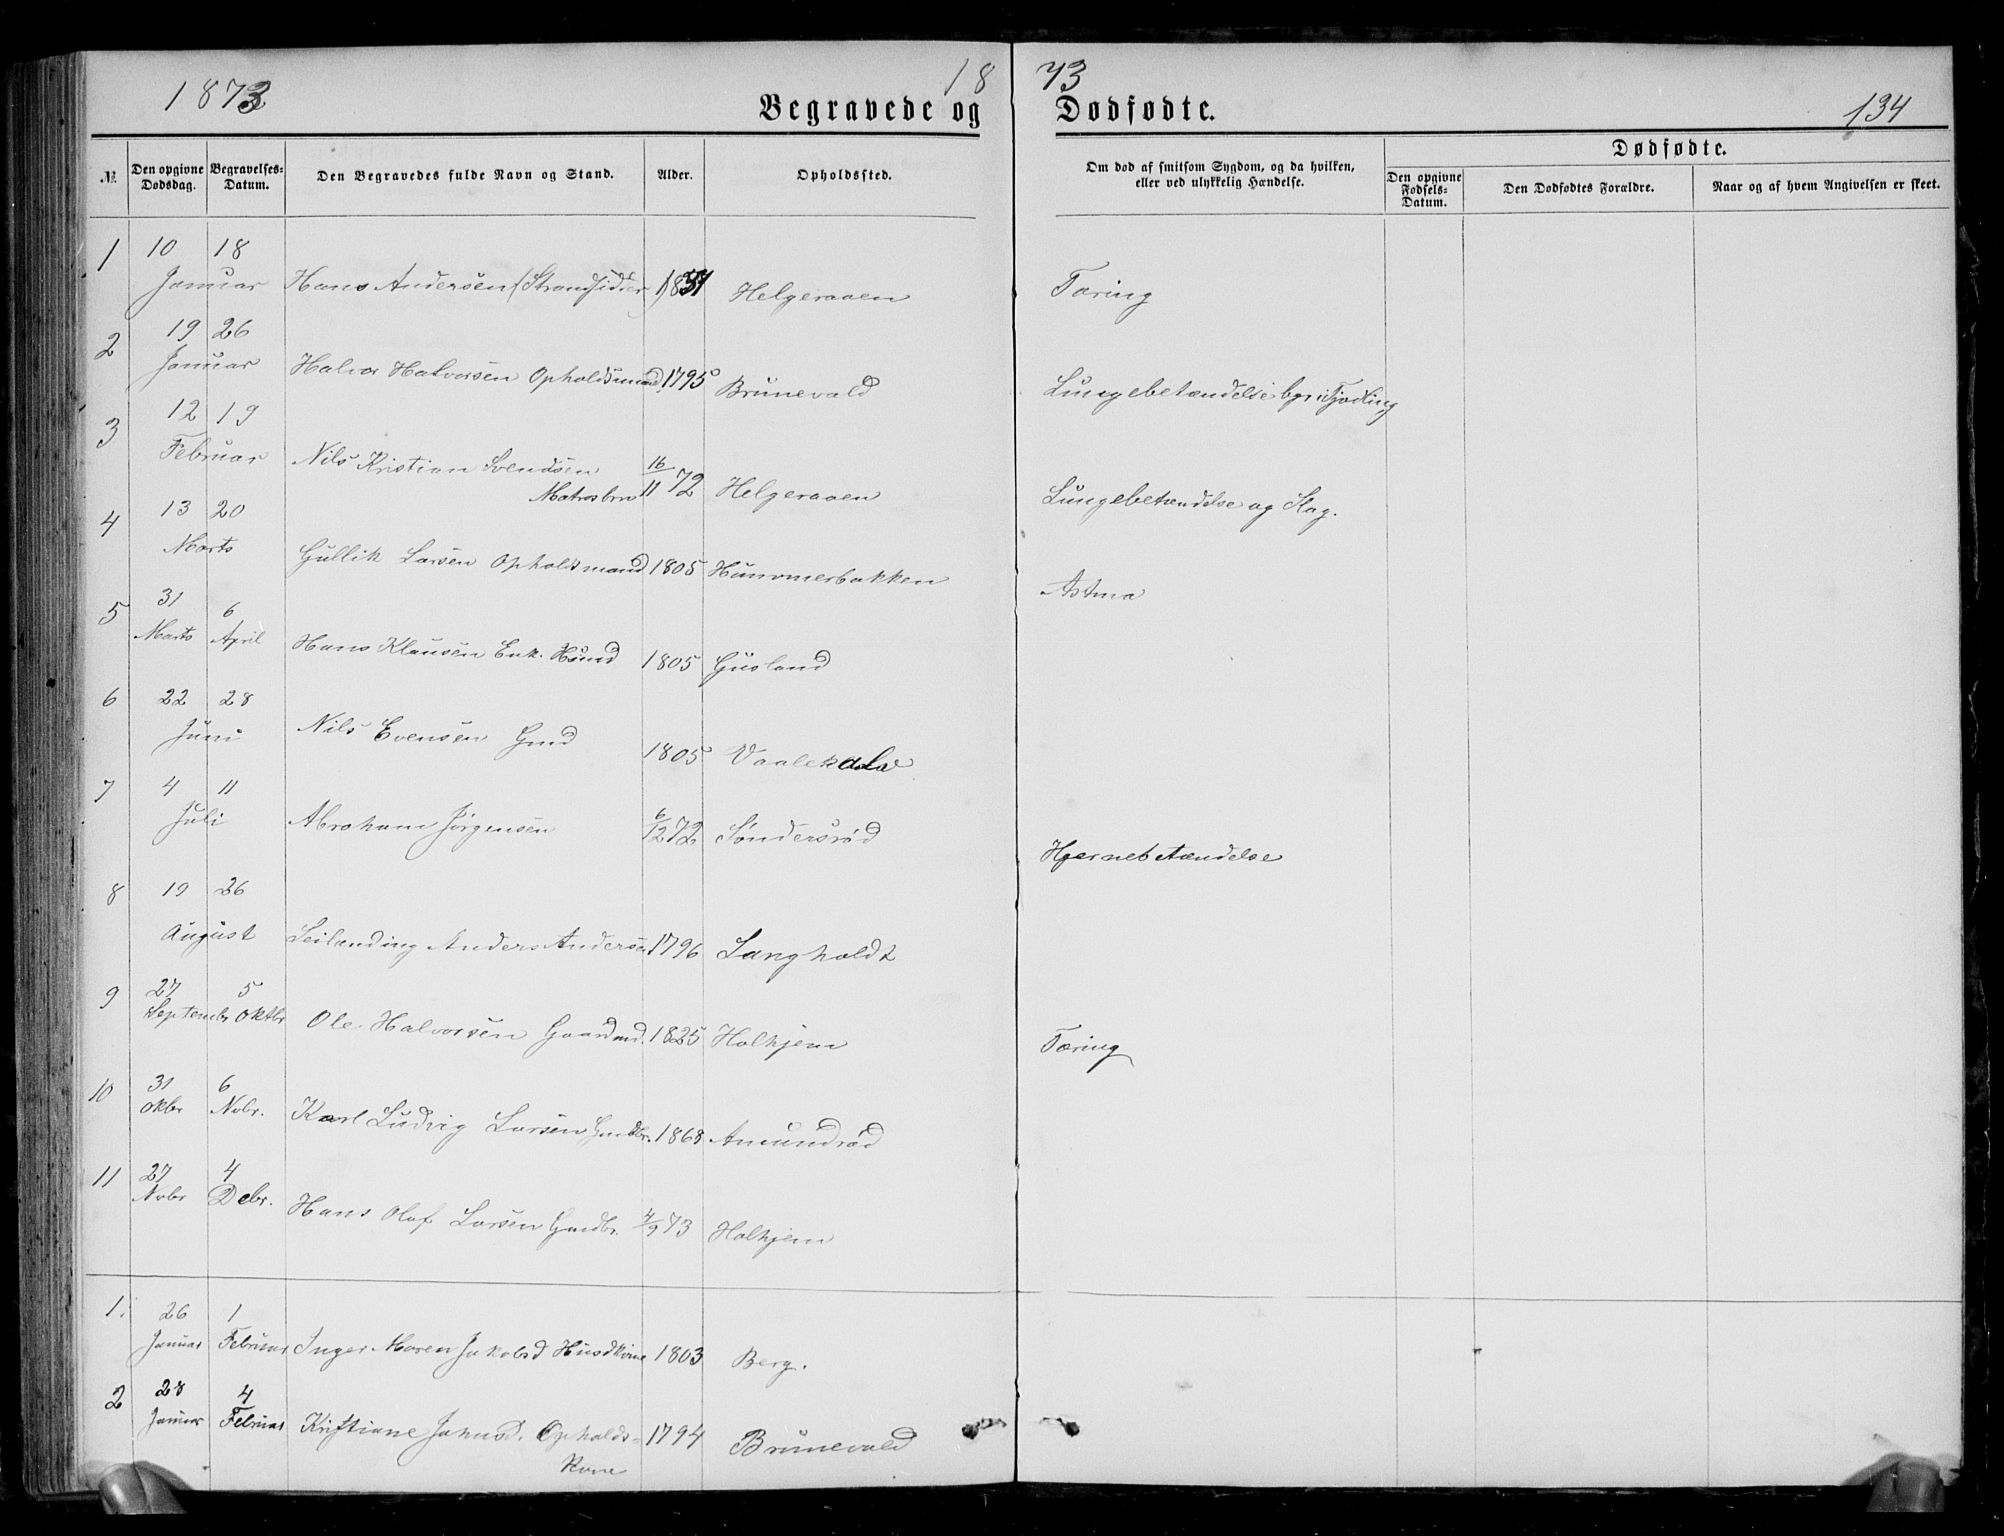 1873
18 73
Begravede og Dødfødte.
134
Dødfødte.
№
Den opgivne Dødsdag.
Begravelses-Datum.
Den Begravedes fulde Navn og Stand.
Alder.
Opholdssted.
Om død af smitsom Sygdom, og da hvilken, eller ved ulykkelig Hændelse.
Den opgivne Fødsels-Datum.
Den Dødfødtes Forældre.
Naar og af hvem Angivelsen er skeet.
1 10 18
Januar Hans Andersen (Strandsidder) Helgeraaen Tæring
2 19 26
Januar Halvor Halvorsen Opholdsmand 1795 Brunevald Lungebetændelse i Tjødling
3 12 19
Februar Nils Kristian Svendsen
Matrosbrn 16/11 72 Helgeraaen Lungebetændelse og Slag.
4 13 20
Marts Gullik Larsen Opholdsmand 1805 Hummerbakken Astma
5 31 6
Marts April Hans Klausen Enk. Husmd 1805 Gusland
6 22 28
Juni Nils Evensen Gmd 1805
7 4 11
Juli Abraham Jørgensen 6/12 72 Søndersrød Hjernebetændelse
8 19 26
August Leilænding Anders Andersen 1796 Langholdt
9 27 5
Septembr Oktbr Ole Halvorsen Gaardmd. 1825 Holhjem Tæring
10 31 6
Okbr Nvbr. Karl Ludvig Larsen Gmdbr. 1868 Amundrød
11 27 4
Nvbr Debr. Hans Olaf Larsen Gmdbr. 4/9 73 Holhjem
1. 26 1
Januar Februar Inger Maren Jakobsd Husmdkone 1803 Berg.
2 28 4
Januar Februar Kristiane Johnsd. Opholds-
Kone 1794 Brunevald